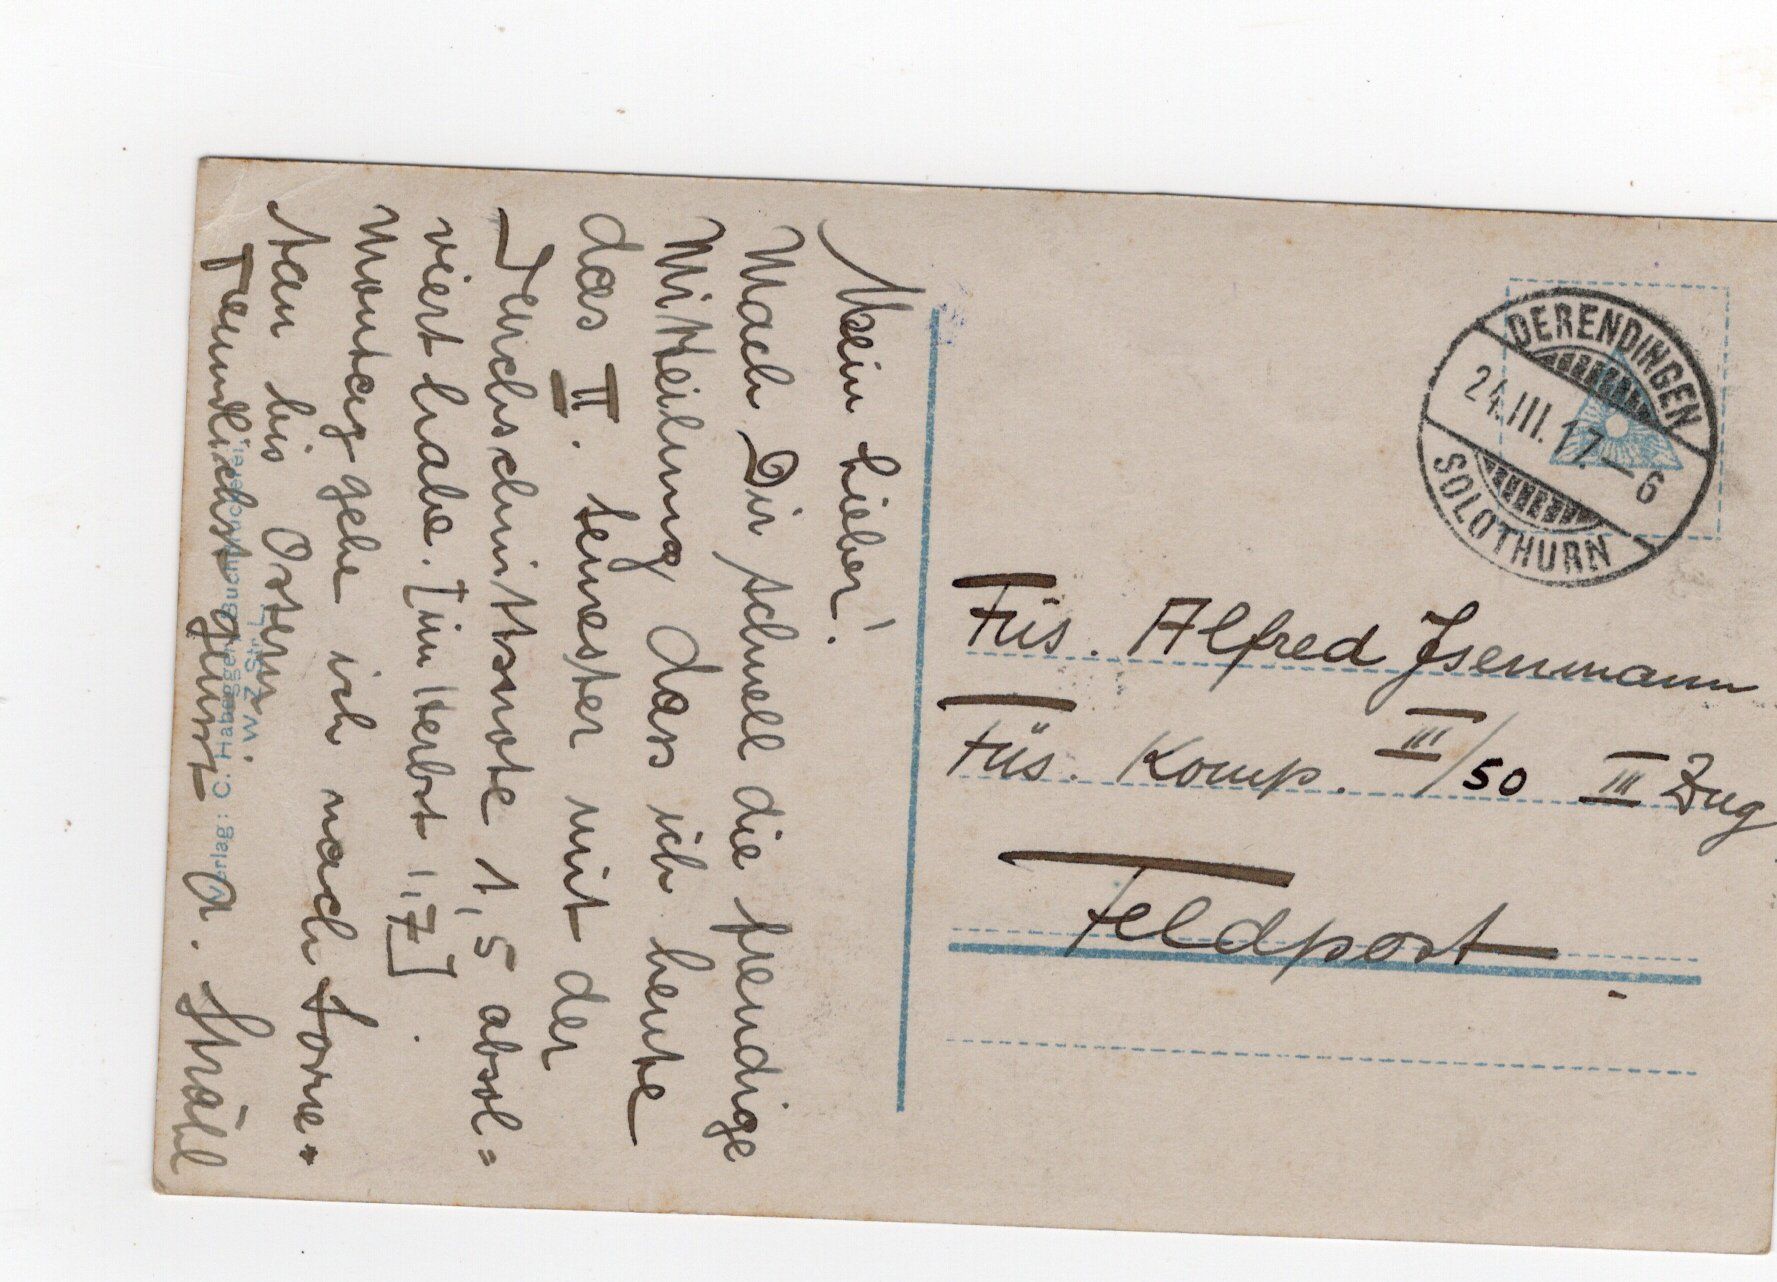 Mein Lieber!
Mach Dir schnell die freudige
Mitteilung dass ich heute
das II. Semester mit der
Durchschnittsnote 1,5 absol=
viert habe. [im Herbst 1,7].
Montag gehe ich nach
tan bis Ostern
Freundlichst grüsst A. Strähl
Verlag: C. Habegger, Buchdruckerei,
DERENDINGEN
24.III.17.–6
SOLOTHURN
Füs. Alfred Isenmann
Füs. Komp. III/50 III Zug
Feldpost